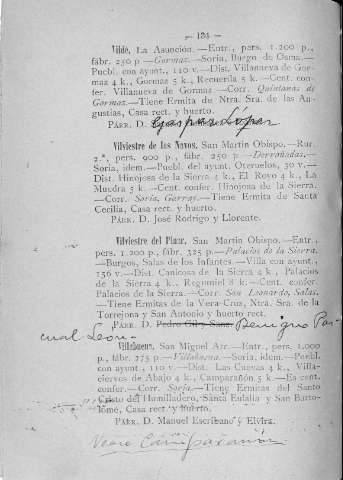 — 134 —
Vilde, La Asunción.—Entr., pers. 1 200 p.,
fábr. 250 p—Gormaz.—Soria, Burgo de Osma.—
Puebl. con ayunt., 110 v.—Dist. Villanueva de Gor-
maz 4 k., Gormaz 5 k., Recuerda 5 k.—Cent. con-
fer. Villanueva de Gormaz—Corr. Quintanas de
Gormaz.—Tiene Ermita de Ntra. Sra. de las An-
gustias, Casa rect. y huerto.
PÁRR. D. Gaspar López
Vilviestre de los Navos, San Martín Obispo.—Rur.
2.ª, pers. 900 p., fábr. 250 p—Derroñadas.—
Soria, idem.—Puebl. del ayunt. Oteruelos, 30 v.—
Dist. Hinojosa de la Sierra 4 k., El Royo 4 k., La
Muedra 5 k.—Cent. confer. Hinojosa de la Sierra.
—Corr. Soria, Garray.—Tiene Ermita de Santa
Cecilia, Casa rect. y huerto.
PÁRR. D. José Rodrigo y Llorente.
Vilviestre del Pinar, San Martín Obispo.—Entr.,
pers. 1 200 p., fábr. 325 p—Palacios de la Sierra.
—Burgos, Salas de los Infantes.—Villa con ayunt.,
156 v.—Dist. Canicosa de la Sierra 4 k., Palacios
de la Sierra 4 k., Regumiel 8 k.—Cent. confer
Palacios de la Sierra.—Corr. San Leonardo, Salas.
—Tiene Ermitas de la Vera-Cruz, Ntra. Sra. de la
Torrejona y San Antonio y huerto rect.
PÁRR. D. Pedro Gil y Sanz. Benigno Pas-
cual Leon
Villabuena, San Miguel Arc.—Entr., pers. 1.000
p., fábr. 275 p—Villabuena.—Soria, idem.—Puebl.
con ayunt., 110 v.—Dist. Las Cuevas 4 k., Villa-
ciervos de Abajo 4 k., Camparañón 5 k.—Es cent.
confer.—Corr. Soria.—Tiene Ermitas del Santo
Cristo del Humilladero, Santa Eulalia y San Barto-
lomé, Casa rect. y huerto.
PÁRR. D. Manuel Escribano y Elvira.
Camparañón